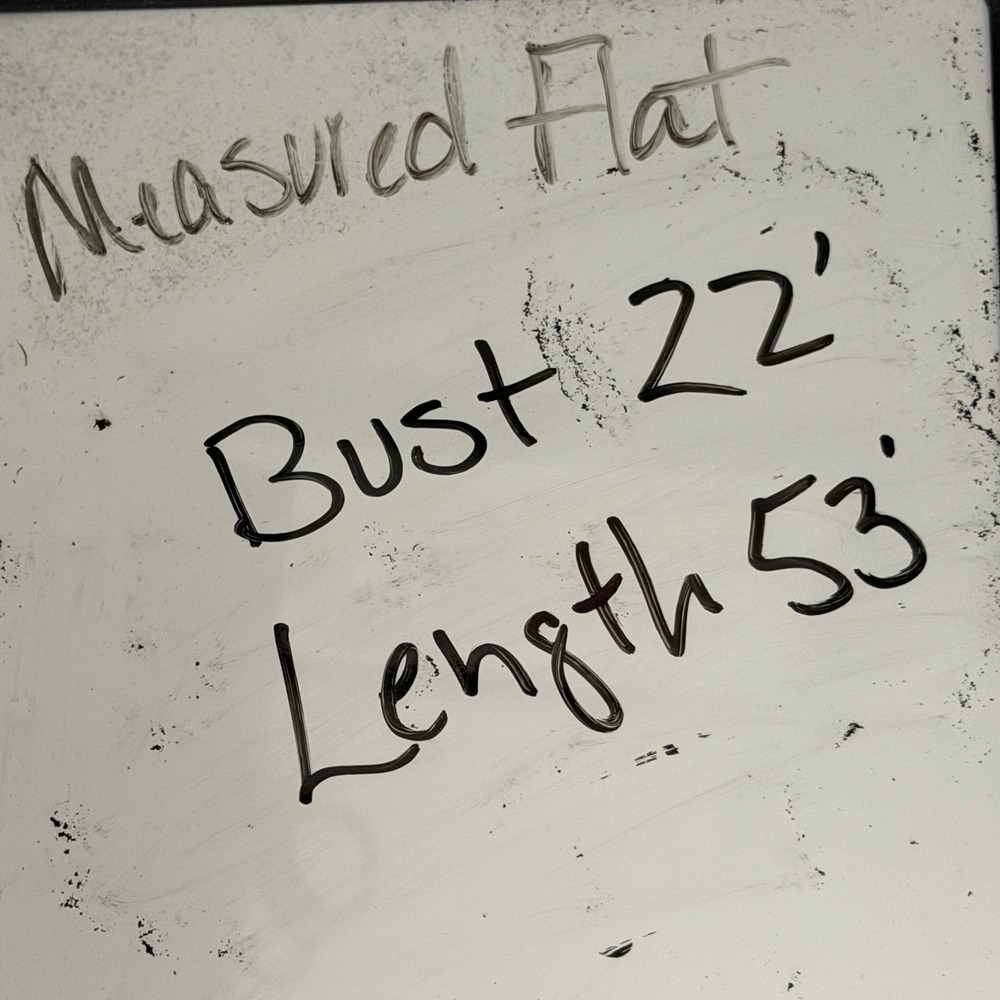 Measured Flat
Bust 22'
Length 53'